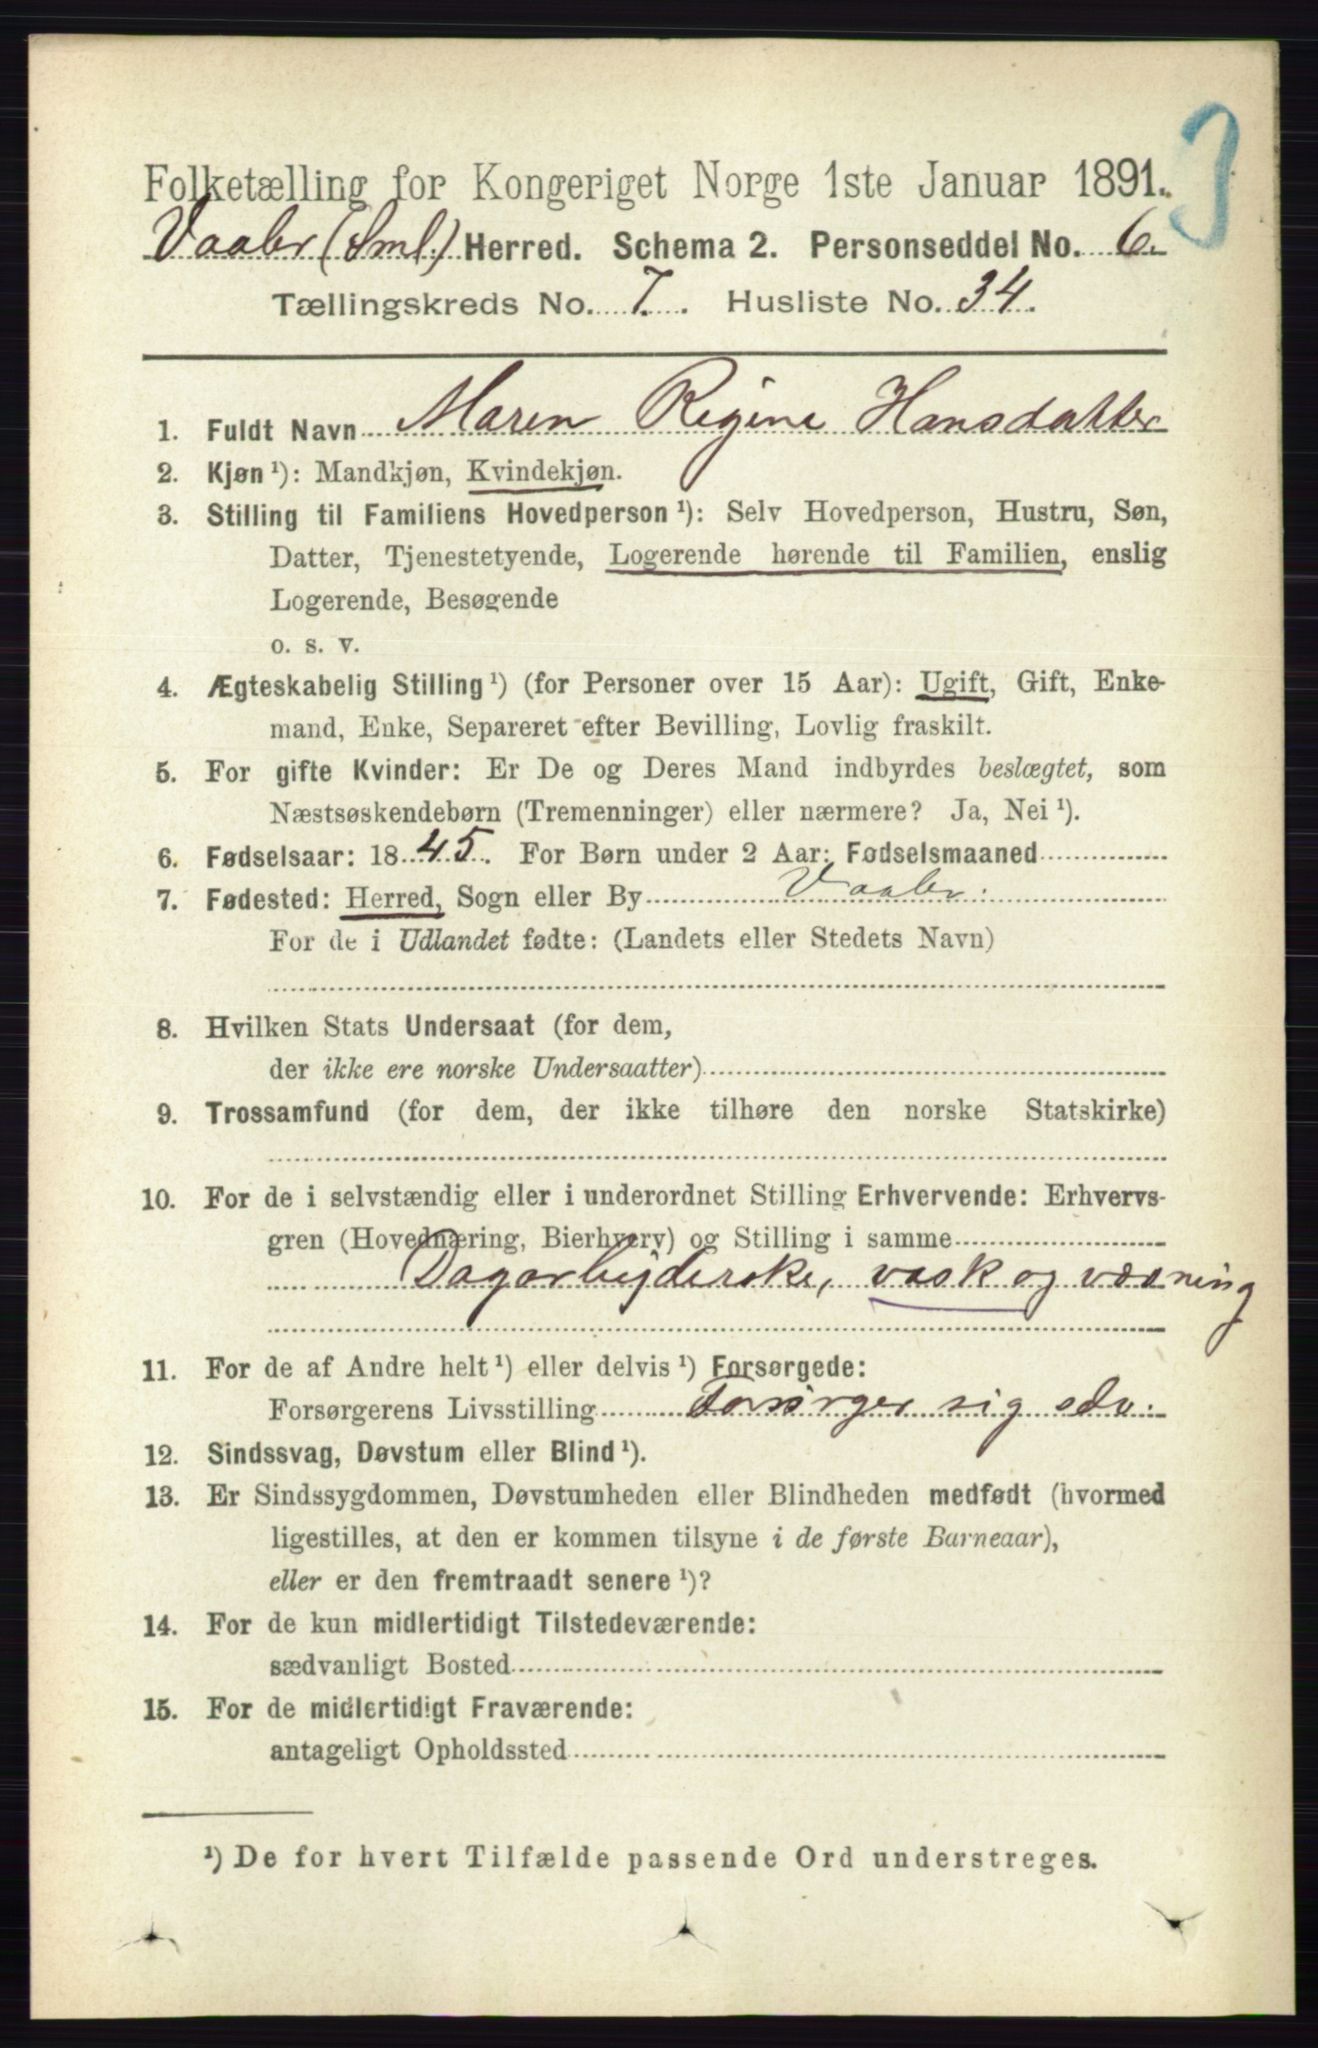 3
Folketælling for Kongeriget Norge 1ste Januar 1891.
Vaaler (Sml.) Herred. Schema 2. Personseddel No. 6.
Tællingskreds No. 7. Husliste No. 34.
1. Fuldt Navn Maren Regine Hansdatter
2. Kjøn ¹): Mandkjøn, Kvindekjøn.
3. Stilling til Familiens Hovedperson ¹): Selv Hovedperson, Hustru, Søn,
Datter, Tjenestetyende, Logerende hørende til Familien, enslig
Logerende, Besøgende
o. s. v.
4. Ægteskabelig Stilling ¹) (for Personer over 15 Aar): Ugift, Gift, Enke-
mand, Enke, Separeret efter Bevilling, Lovlig fraskilt.
5. For gifte Kvinder: Er De og Deres Mand indbyrdes beslægtet, som
Næstsøskendebørn (Tremenninger) eller nærmere? Ja, Nei ¹).
6. Fødselsaar: 1845. For Børn under 2 Aar: Fødselsmaaned
7. Fødested: Herred, Sogn eller By Vaaler.
For de i Udlandet fødte: (Landets eller Stedets Navn)
8. Hvilken Stats Undersaat (for dem,
der ikke ere norske Undersaatter)
9. Trossamfund (for dem, der ikke tilhøre den norske Statskirke)
10. For de i selvstændig eller i underordnet Stilling Erhvervende: Erhvervs-
gren (Hovednæring, Bierhverv) og Stilling i samme
Dagarbejderske, vask og vævning
11. For de af Andre helt ¹) eller delvis ¹) Forsørgede:
Forsørgerens Livsstilling Forsörger sig selv.
12. Sindssvag, Døvstum eller Blind ¹).
13. Er Sindssygdommen, Døvstumheden eller Blindheden medfødt (hvormed
ligestilles, at den er kommen tilsyne i de første Barneaar),
eller er den fremtraadt senere ¹)?
14. For de kun midlertidigt Tilstedeværende:
sædvanligt Bosted
15. For de midlertidigt Fraværende:
antageligt Opholdssted
¹) De for hvert Tilfælde passende Ord understreges.